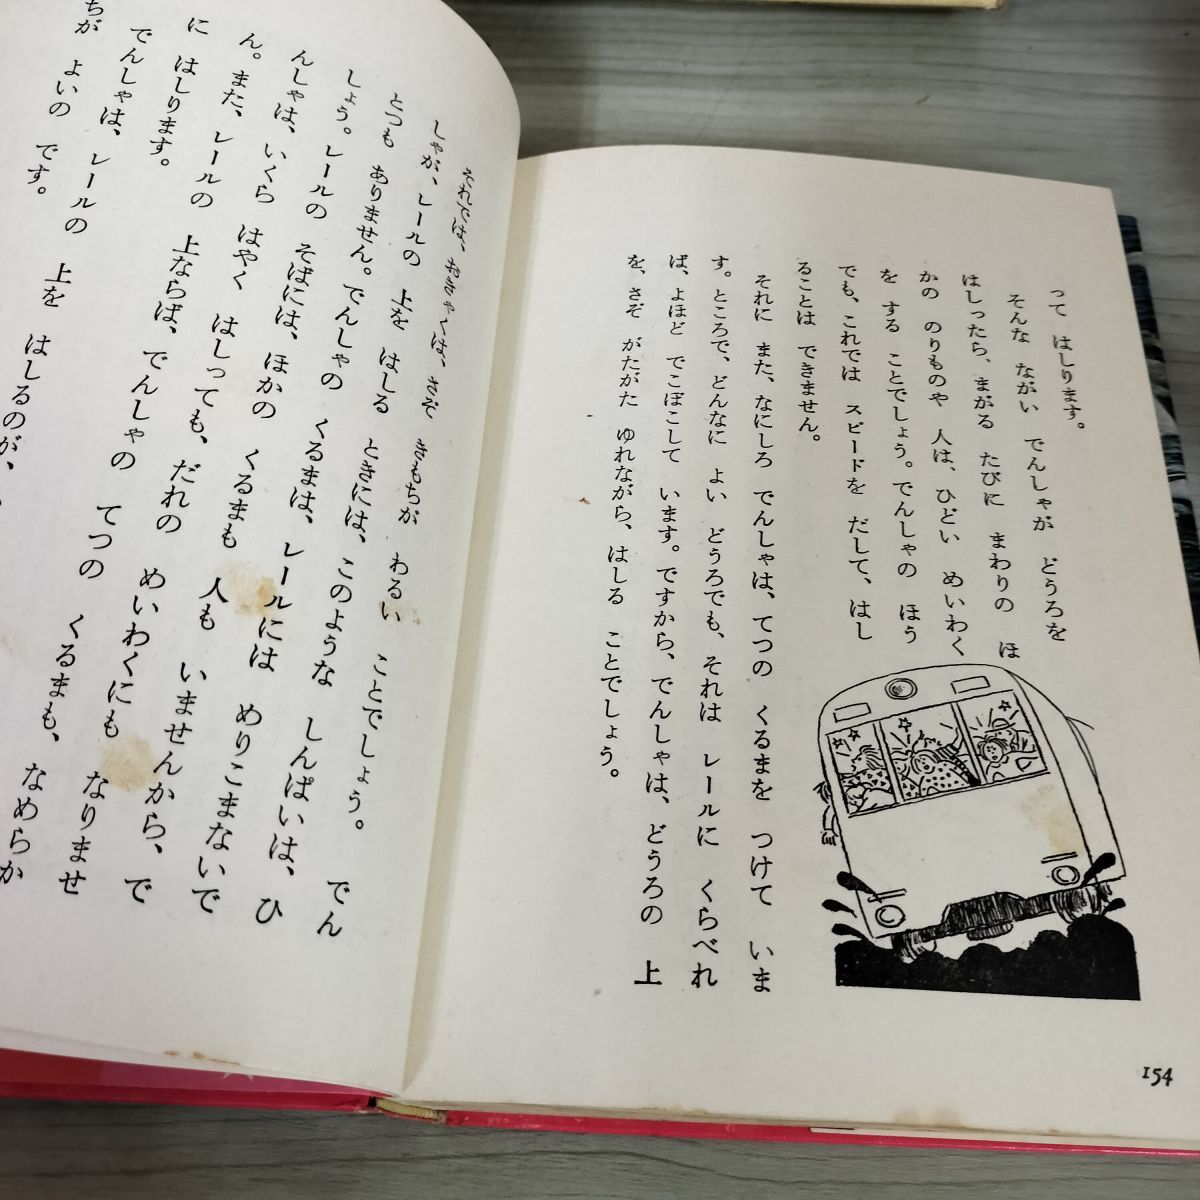 って はしります。
そんな ながい でんしゃが どうろを
はしったら、まがる たびに まわりの ほ
かの のりものや 人は、ひどい めいわく
を する ことでしょう。でんしゃの ほう
でも、これでは スピードを だして、はし
ることは できません。
それに また、なにしろ でんしゃは、てつの くるまを つけて いま
す。ところで、どんなに よい どうろでも、それは レールに くらべれ
ば、よほど でこぼこして います。ですから、でんしゃは、どうろの 上
を、さぞ がたがた ゆれながら、はしる ことでしょう。
154
それでは、おきゃくは、さぞ きもちが わるい ことでしょう。
しゃが、レールの 上を はしる ときには、このような しんぱいは、ひ
とつも ありません。でんしゃの くるまは、レールには めりこまないで
しょう。レールの そばには、ほかの くるまも 人も いませんから、で
んしゃは、いくら はやく はしっても、だれの めいわくにも なりませ
ん。また、レールの 上ならば、でんしゃの てつの くるまも、なめらか
に はしります。
でんしゃは、レールの 上を はしるのが、
ちが よいの です。
でん